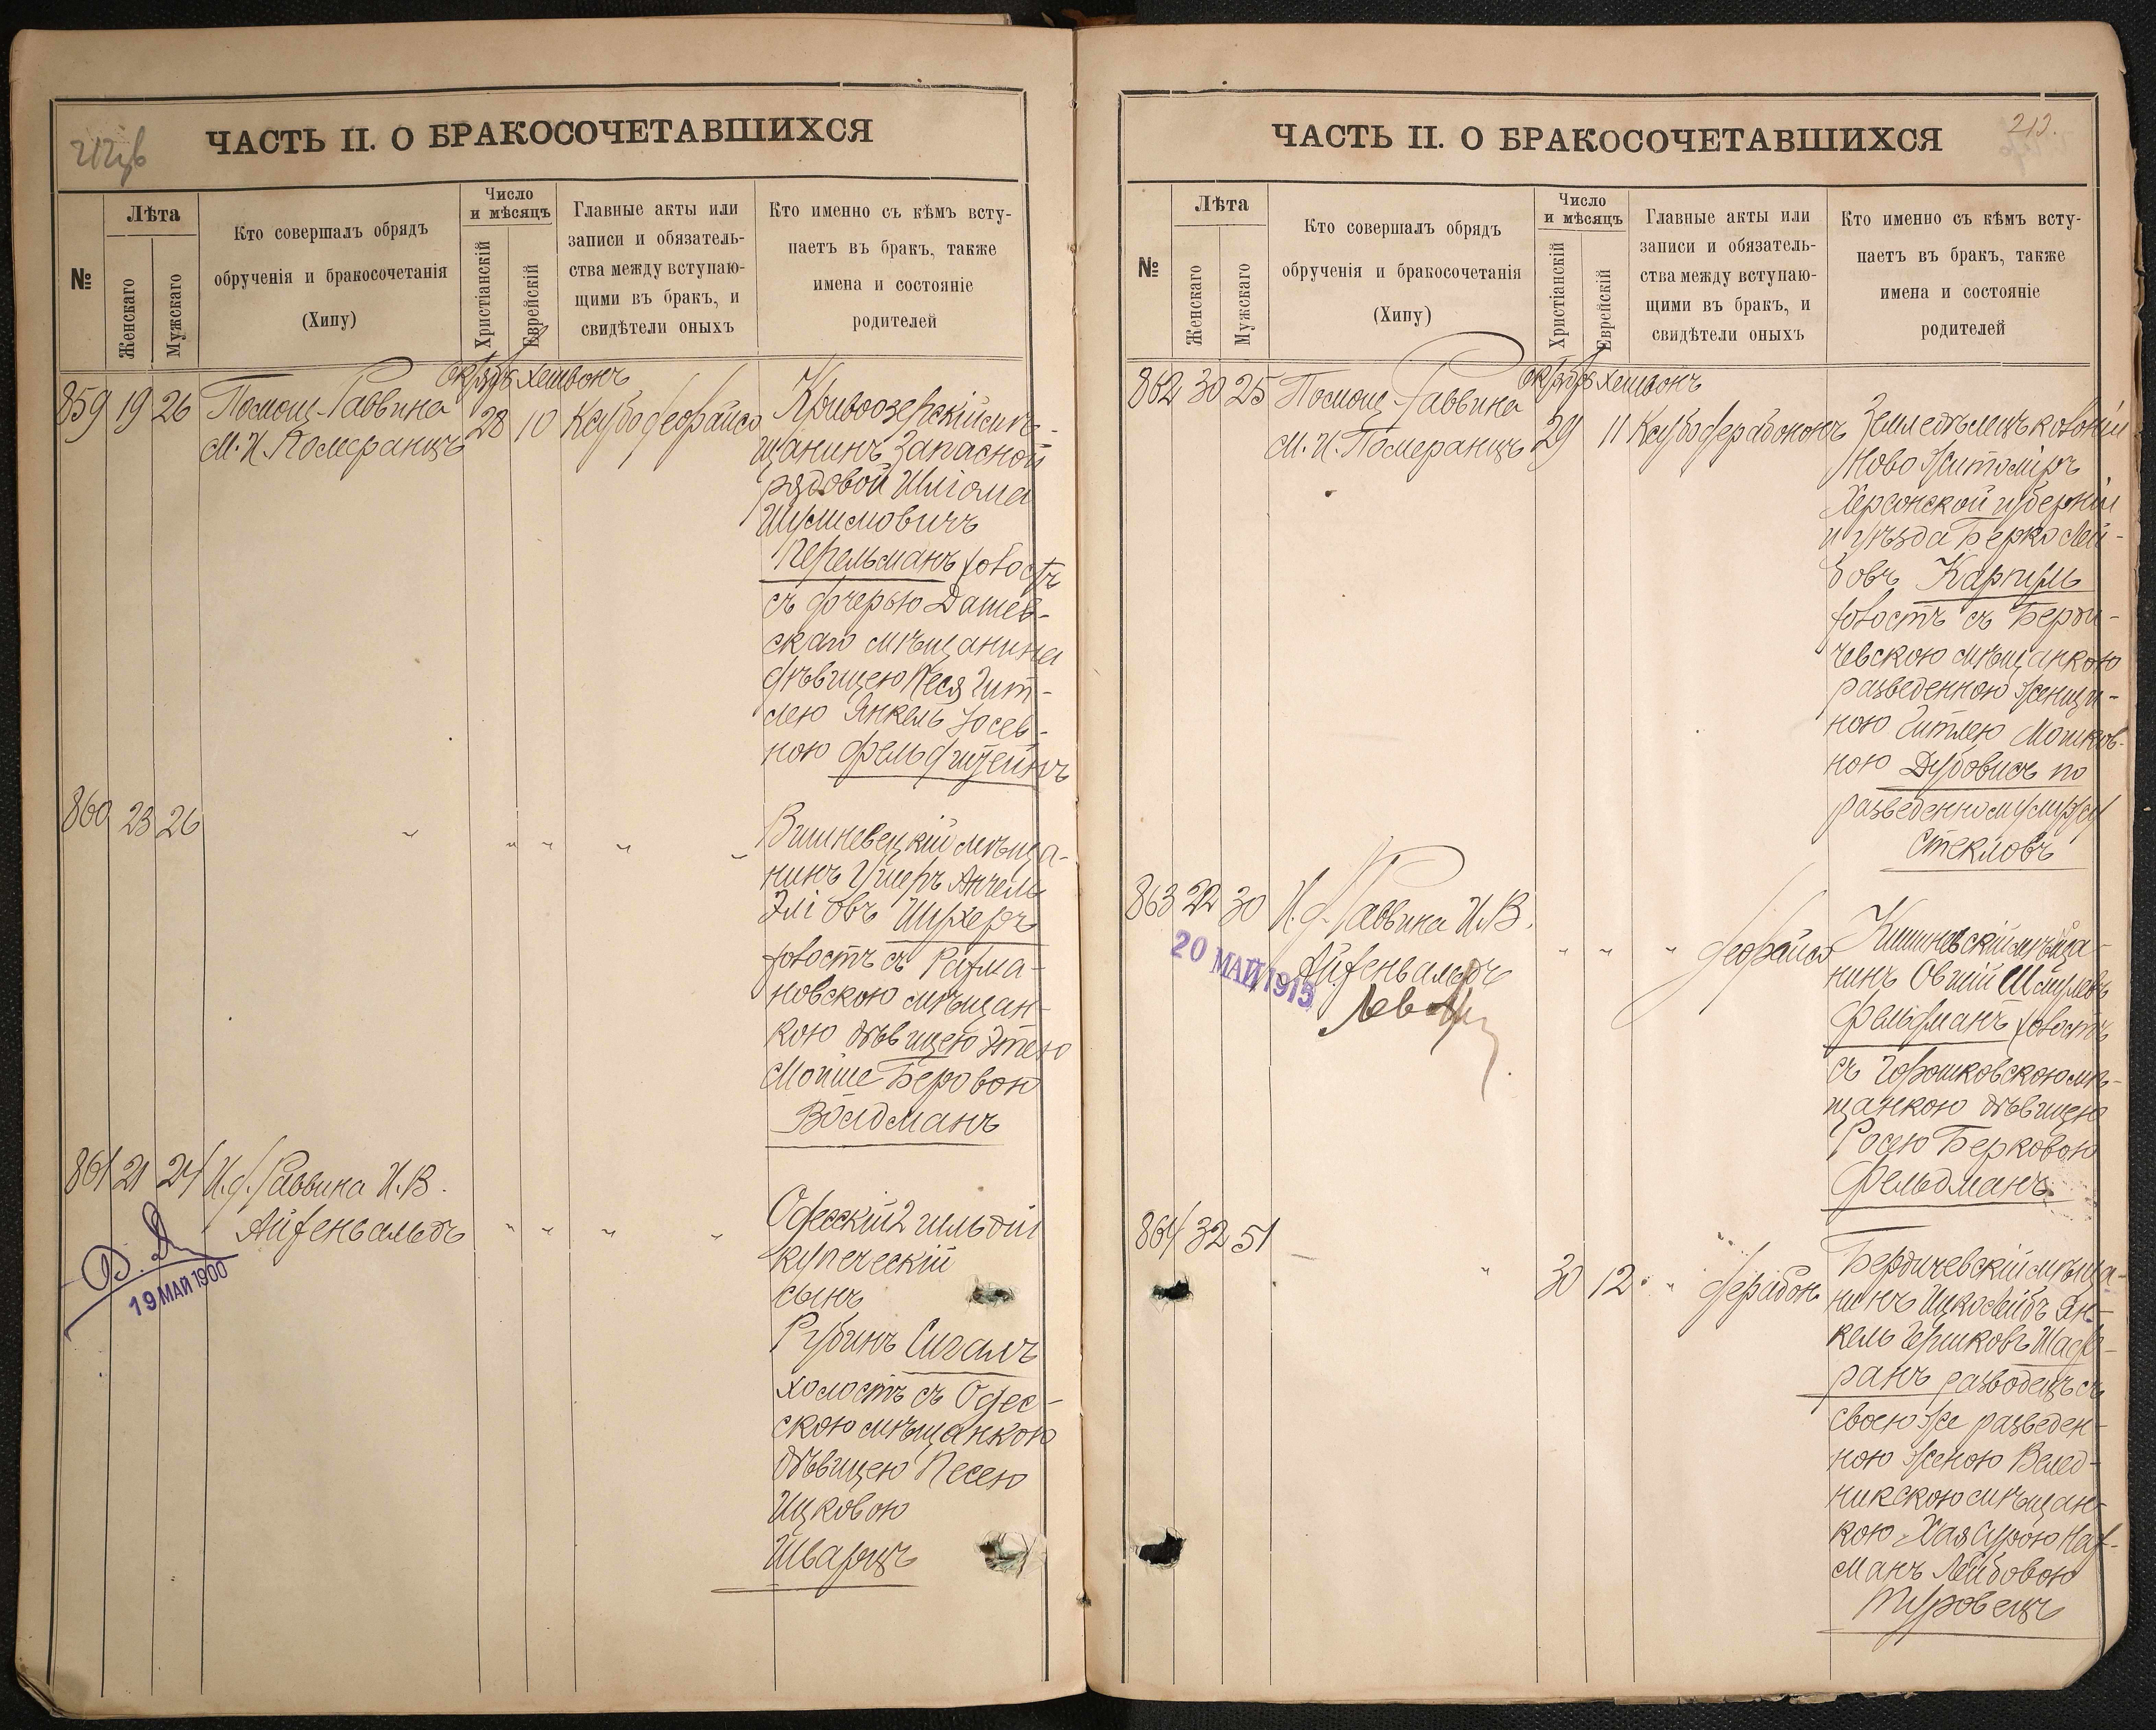 212об
ЧАСТЬ II. О БРАКОСОЧЕТАВШИХСЯ
№
Лѣта
Женскаго
Мужскаго
Кто совершалъ обрядъ
обрученія и бракосочетанія
(Хипу)
Число
и мѣсяцъ
Христіанскій
Еврейскій
Главные акты или
записи и обязатель-
ства между вступаю-
щими въ бракъ, и
свидѣтели оныхъ
Кто именно съ кѣмъ всту-
паетъ въ бракъ, также
имена и состояніе
родителей
октябрь хешвонъ
859 19 26 Помощ. Раввина
М. И. Померанцъ
28 10
Кривоозерскій мѣ-
щанинъ запасной
рядовой Шліома
Шулимовичъ
Перельманъ холостъ
съ дочерью Дашев-
скаго мѣщанина
дѣвицею Песя Гит-
лею Янкель Іосев-
ною Фельдштейнъ
860 23 26 " " " " "
Вишневецкій мѣща-
нинъ Ушеръ Анчель
Эліовъ Шухеръ
холостъ съ Рахма-
новскою мѣщан-
кою дѣвицею Этею
Мойше Беровою
Волдманъ
861 21 24 И. д. Раввина И. В.
Айзенвальдъ " " " "
19 МАЙ 1900
Одесскій 2 гильдіи
купеческій
сынъ
Рубинъ Сигалъ
холостъ съ Одес-
скою мѣщанкою
дѣвицею Песею
Ицковою
Шварцъ
213.
ЧАСТЬ II. О БРАКОСОЧЕТАВШИХСЯ
№
Лѣта
Женскаго
Мужскаго
Кто совершалъ обрядъ
обрученія и бракосочетанія
(Хипу)
Число
и мѣсяцъ
Христіанскій
Еврейскій
Главные акты или
записи и обязатель-
ства между вступаю-
щими въ бракъ, и
свидѣтели оныхъ
Кто именно съ кѣмъ всту-
паетъ въ бракъ, также
имена и состояніе
родителей
октябрь хешвонъ
862 30 25 Помощ. Раввина
М. И. Померанцъ
29 11
Земледѣлецъ колоніи
Ново Житоміръ
Херсонской губерніи
и уѣзда Берко Лей-
бовъ
холостъ съ Берди-
чевскою мѣщанкою
разведенною женщи-
ною Гитлею Мошков-
ною Дубовисъ по
разведенному мужу
Стекловъ
863 22 30 И. д. Раввина И. В.
Айзенвальдъ " " "
20 МАЙ 1915
Кишиневскій мѣща-
нинъ Овшій Шмулевъ
Фельдманъ холостъ
съ Горошковскою мѣ-
щанкою дѣвицею
Росею Берковою
Фельдманъ
864 32 51 " 30 12 "
Бердичевскій мѣща-
нинъ Ицко Лейбъ Ян-
кель Гершковъ Шаф-
ранъ разводецъ съ
своею же разведен-
ною женою Велед-
никскою мѣщан-
кою Хая Сурою Нах-
манъ Лейбовою
Туровецъ